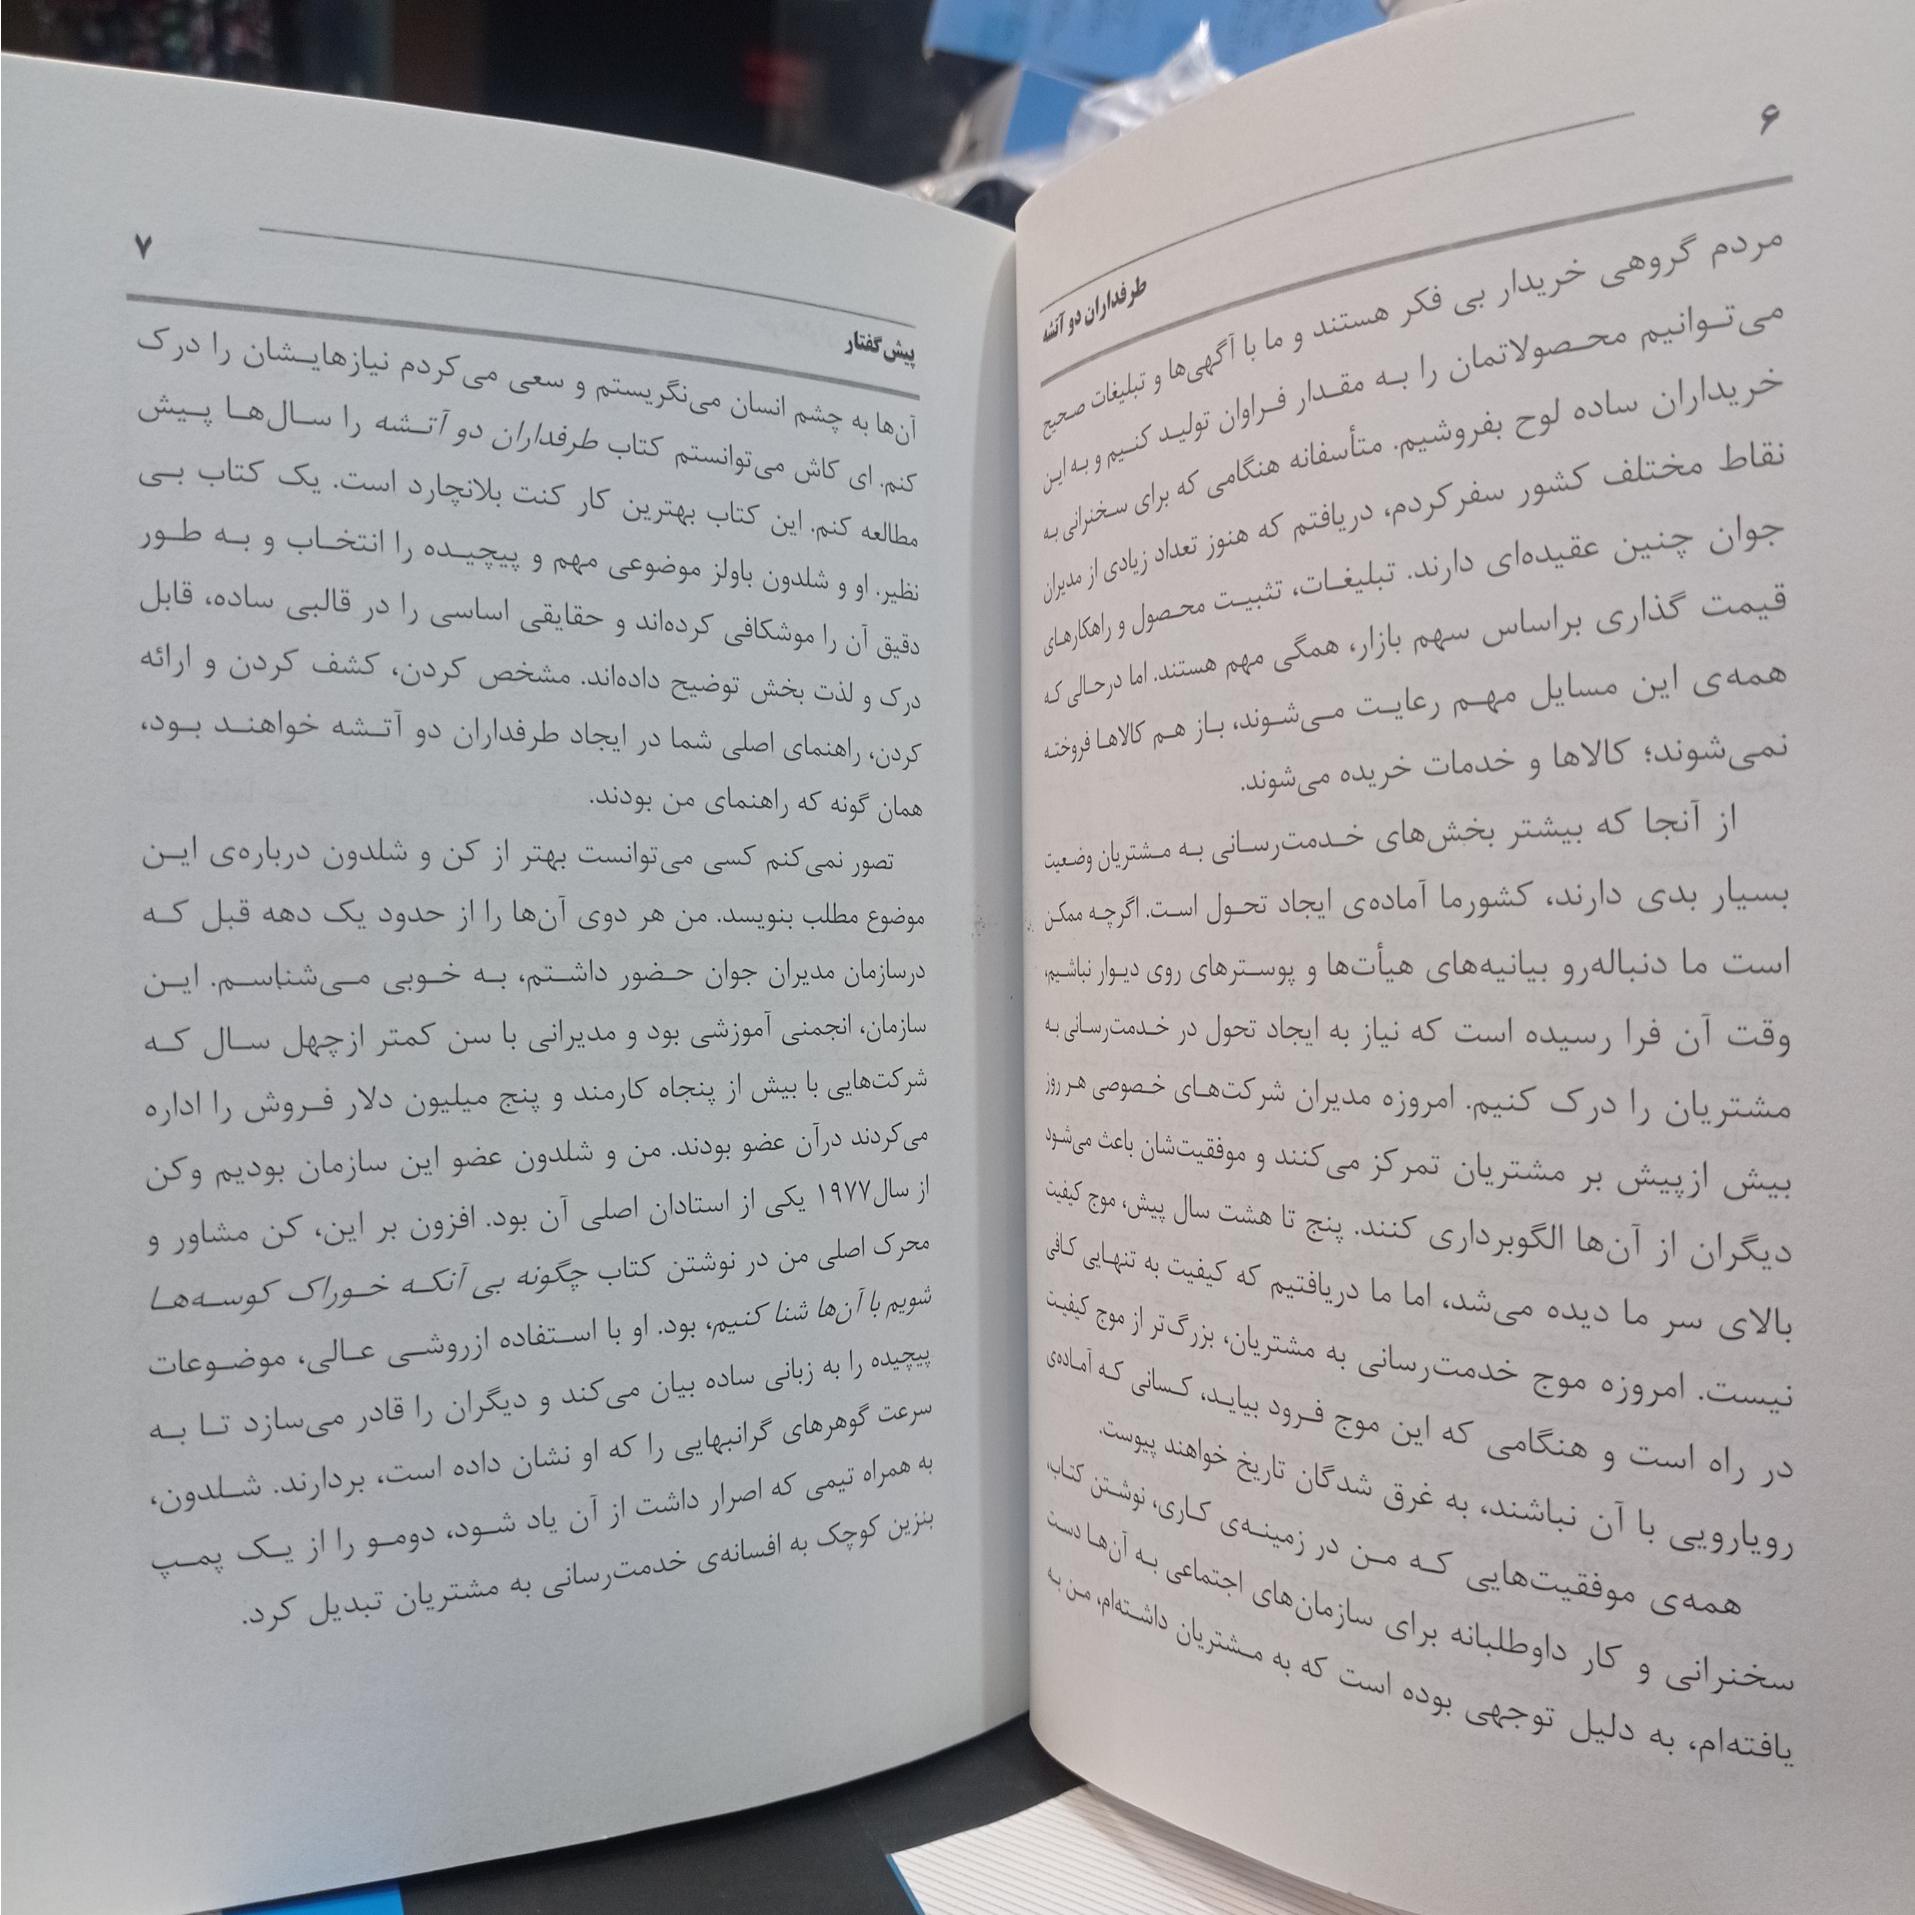 ۶
طرفداران دو آتشه
مردم گروهی خریدار بی فکر هستند و ما با آگهی‌ها و تبلیغات صحیح
می‌توانیم محصولاتمان را به مقدار فراوان تولید کنیم و به این
خریداران ساده لوح بفروشیم. متأسفانه هنگامی که برای سخنرانی به
نقاط مختلف کشور سفرکردم، دریافتم که هنوز تعداد زیادی از مدیران
جوان چنین عقیده‌ای دارند. تبلیغات، تثبیت محصول و راهکارهای
قیمت گذاری براساس سهم بازار، همگی مهم هستند. اما درحالی که
همه‌ی این مسایل مهم رعایت می‌شوند، باز هم کالاها فروخته
نمی‌شوند؛ کالاها و خدمات خریده می‌شوند.
از آنجا که بیشتر بخش‌های خدمت‌رسانی به مشتریان وضعیت
بسیار بدی دارند، کشورما آماده‌ی ایجاد تحول است. اگرچه ممکن
است ما دنباله‌رو بیانیه‌های هیأت‌ها و پوسترهای روی دیوار نباشیم،
وقت آن فرا رسیده است که نیاز به ایجاد تحول در خدمت‌رسانی به
مشتریان را درک کنیم. امروزه مدیران شرکت‌های خصوصی هر روز
بیش ازپیش بر مشتریان تمرکز می‌کنند و موفقیت‌شان باعث می‌شود
دیگران از آن‌ها الگوبرداری کنند. پنج تا هشت سال پیش، موج کیفیت
بالای سر ما دیده می‌شد، اما ما دریافتیم که کیفیت به تنهایی کافی
نیست. امروزه موج خدمت‌رسانی به مشتریان، بزرگ‌تر از موج کیفیت
در راه است و هنگامی که این موج فرود بیاید، کسانی که آماده‌ی
رویارویی با آن نباشند، به غرق شدگان تاریخ خواهند پیوست.
همه‌ی موفقیت‌هایی که من در زمینه‌ی کاری، نوشتن کتاب،
سخنرانی و کار داوطلبانه برای سازمان‌های اجتماعی به آن‌ها دست
یافته‌ام، به دلیل توجهی بوده است که به مشتریان داشته‌ام، من به
۷
پیش‌گفتار
آن‌ها به چشم انسان می‌نگریستم و سعی می‌کردم نیازهایشان را درک
کنم. ای کاش می‌توانستم کتاب طرفداران دو آتشه را سال‌ها پیش
مطالعه کنم. این کتاب بهترین کار کنت بلانچارد است. یک کتاب بی
نظیر. او و شلدون باولز موضوعی مهم و پیچیده را انتخاب و به طور
دقیق آن را موشکافی کرده‌اند و حقایقی اساسی را در قالبی ساده، قابل
درک و لذت بخش توضیح داده‌اند. مشخص کردن، کشف کردن و ارائه
کردن، راهنمای اصلی شما در ایجاد طرفداران دو آتشه خواهند بود،
همان گونه که راهنمای من بودند.
تصور نمی‌کنم کسی می‌توانست بهتر از کن و شلدون درباره‌ی این
موضوع مطلب بنویسد. من هر دوی آن‌ها را از حدود یک دهه قبل که
درسازمان مدیران جوان حضور داشتم، به خوبی می‌شناسم. این
سازمان، انجمنی آموزشی بود و مدیرانی با سن کمتر ازچهل سال که
شرکت‌هایی با بیش از پنجاه کارمند و پنج میلیون دلار فروش را اداره
می‌کردند درآن عضو بودند. من و شلدون عضو این سازمان بودیم وکن
از سال۱۹۷۷ یکی از استادان اصلی آن بود. افزون بر این، کن مشاور و
محرک اصلی من در نوشتن کتاب چگونه بی آنکه خوراک کوسه‌ها
شویم با آن‌ها شنا کنیم، بود. او با استفاده ازروشی عالی، موضوعات
پیچیده را به زبانی ساده بیان می‌کند و دیگران را قادر می‌سازد تا به
سرعت گوهرهای گرانبهایی را که او نشان داده است، بردارند. شلدون،
به همراه تیمی که اصرار داشت از آن یاد شود، دومو را از یک پمپ
بنزین کوچک به افسانه‌ی خدمت‌رسانی به مشتریان تبدیل کرد.